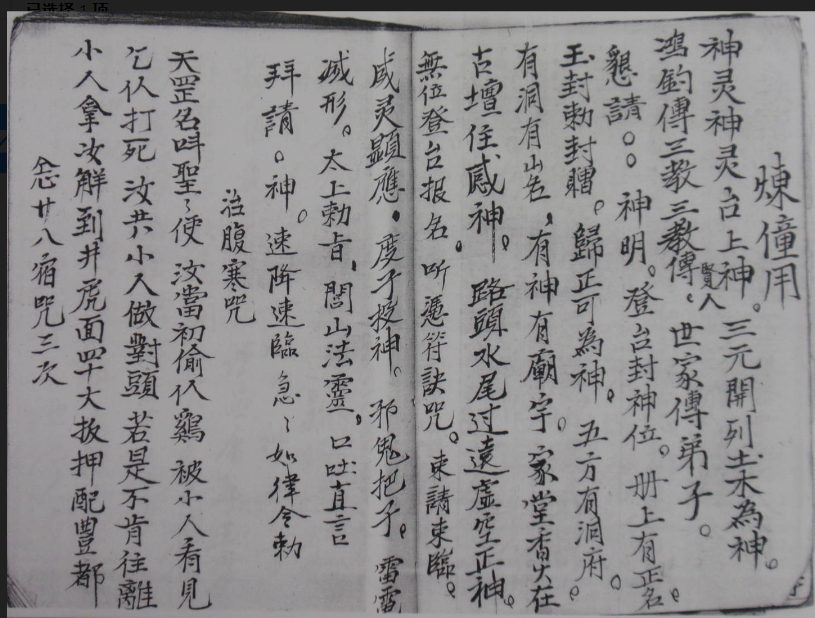 已选择 1 项
煉僮用
神灵神灵台上神。三元開列土木為神。
鴻鈞傳三教三教傳賢人、世家傳弟子。
懇請。。神明。登台封神位。册上有正名。
玉封勅封贈。歸正可為神。五方有洞府。
有洞有山名，有神有廟宇。家堂香火在
古壇住感神。路頭水尾过遠虛空正神。
無位登台报名。听憑符訣咒。東請東臨。
威灵顯應。度子投神。邪鬼把子。雷霄
滅形。太上勅旨，閭山法靈，口吐直言
拜請。神。速降速臨急〻如律令勅
治腹寒咒
天罡名叫聖〻便汝當初偷仈鷄被小人看見
乞仈打死汝共小人做對頭若是不肯往離
小人拿汝觧到井虎面四十大板押配豊都
念廿八宿咒三次